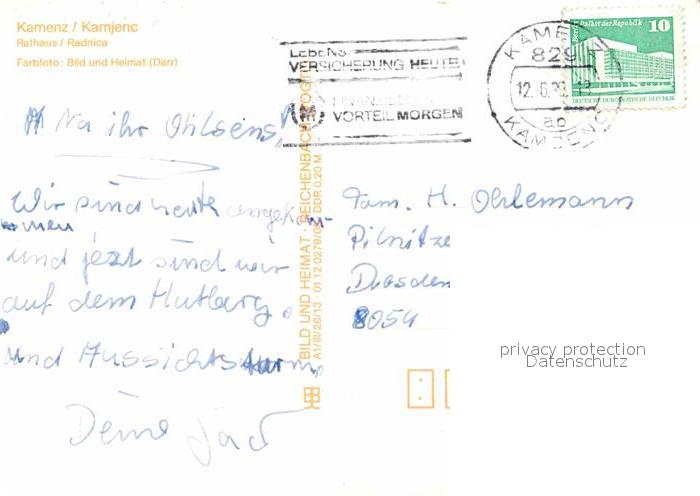 Kamenz / Kamjenc
Rathaus / Radnica
Farbfoto: Bild und Heimat (Darr)
LEBENS
VERSICHERUNG HEUTE
VORTEIL MORGEN
KAMENZ
829
12.6.
ao
KAMJENC
Palast der Republik 10
DEUTSCHE DEMOKRATISCHE REPUBLIK
Na ihr Ohlsens,
Wir sind heute angekom-
men
und jezt sind wir
auf dem Hutberg.
und Aussichtsturm.
Deine
BILD UND HEIMAT · REICHENBACH
A1/III/26/13 · 01 12 0279/ DDR 0,20 M
Fam. H. Ohlemann
Pilnitze
Dresden
8054
privacy protection
Datenschutz